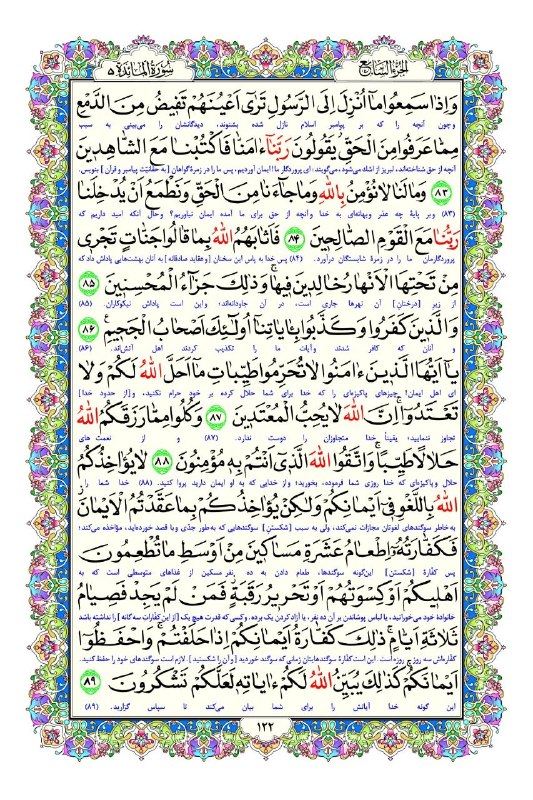 الجزء السابع
سورة المائدة ۵
وَاِذا سَمِعُوا مآ اُنْزِلَ اِلَى الرَّسُولِ تَرٰٓى اَعْيُنَهُمْ تَفيضُ مِنَ الدَّمْعِ
و چون آنچه را که بر پیامبر اسلام نازل شده بشنوند، دیدگانشان را می‌بینی به سبب
مِمّا عَرَفُوا مِنَ الْحَقِّ يَقُولُونَ رَبَّنآ ءامَنّا فَاكْتُبْنا مَعَ الشّاهِدينَ
آنچه از حق شناخته‌اند، لبریز از اشک می‌شود، می‌گویند: ای پروردگار ما! ایمان آوردیم، پس ما را در زمرۀ گواهان [به حقانیّت پیامبر و قرآن] بنویس.
﴿٨٣﴾ وَمالَنا لانُؤْمِنُ بِاللهِ وَماجآءَنا مِنَ الْحَقِّ وَنَطْمَعُ اَنْ يُدْخِلَنا
(۸۳) و بر پایۀ چه عذر و بهانه‌ای به خدا و آنچه از حق برای ما آمده ایمان نیاوریم؟ و حال آنکه امید داریم که
رَبُّنا مَعَ الْقَوْمِ الصّالِحينَ ﴿٨٤﴾ فَاَثابَهُمُ اللهُ بِما قالُوا جَنّاتٍ تَجْرى
پروردگارمان ما را در زمرۀ شایستگان درآورد. (۸۴) پس خدا به پاس این سخنان [و عقاید صادقانه] به آنان بهشت‌هایی پاداش داد که
مِنْ تَحْتِهَا الْاَنْهارُ خالِدينَ فيها وَذٰلِكَ جَزآءُ الْمُحْسِنينَ ﴿٨٥﴾
از زیرِ [درختانِ] آن نهرها جاری است، در آن جاودانه‌اند؛ و این است پاداش نیکوکاران. (۸۵)
وَالَّذينَ كَفَرُوا وَكَذَّبُوا بِـٔاياتِنآ اُولٰٓئِكَ اَصْحابُ الْجَحيمِ ﴿٨٦﴾
و آنان که کافر شدند و آیات ما را تکذیب کردند اهل آتش‌اند. (۸۶)
يآ اَيُّهَا الَّذينَ ءامَنُوا لاتُحَرِّمُوا طَيِّباتِ مآ اَحَلَّ اللهُ لَكُمْ وَلا
ای اهل ایمان! چیزهای پاکیزه‌ای را که خدا برای شما حلال کرده بر خود حرام نکنید، و [از حدود خدا]
تَعْتَدُوٓا اِنَّ اللهَ لايُحِبُّ الْمُعْتَدينَ ﴿٨٧﴾ وَكُلُوا مِمّا رَزَقَكُمُ اللهُ
تجاوز ننمایید؛ یقیناً خدا متجاوزان را دوست ندارد. (۸۷) و از نعمت های
حَلالًا طَيِّبًا وَاتَّقُوا اللهَ الَّذى اَنْتُمْ بِه مُؤْمِنُونَ ﴿٨٨﴾ لايُؤاخِذُكُمُ
حلال و پاکیزه‌ای که خدا روزی شما فرموده، بخورید؛ و از خدایی که به او ایمان دارید پروا کنید. (۸۸) خدا شما را
اللهُ بِاللَّغْوِ فى اَيْمانِكُمْ وَلٰكِنْ يُؤاخِذُكُمْ بِما عَقَّدْتُمُ الْاَيْمانَ
به خاطر سوگندهای لغوتان مجازات نمی‌کند، ولی به سبب [شکستن] سوگندهایی که به طور جدّی و با قصد خورده‌اید، مؤاخذه می‌کند؛
فَكَفّارَتُهُٓ اِطْعامُ عَشَرَةِ مَساكينَ مِنْ اَوْسَطِ ما تُطْعِمُونَ
پس کفّارۀ [شکستن] این‌گونه سوگندها، طعام دادن به ده نفر مسکین از غذاهای متوسطی است که به
اَهْليكُمْ اَوْكِسْوَتُهُمْ اَوْتَحْريرُ رَقَبَةٍ فَمَنْ لَمْ يَجِدْ فَصِيامُ
خانوادۀ خود می‌خورانید، یا لباس پوشاندن بر آن ده نفر، یا آزاد کردن یک برده. و کسی که قدرت هیچ یک [از این کفارات سه گانه] را نداشته باشد
ثَلاثَةِ اَيّامٍ ذٰلِكَ كَفّارَةُ اَيْمانِكُمْ اِذا حَلَفْتُمْ وَاحْفَظُوٓا
کفّاره‌اش سه روز روزه است. این است کفّارۀ سوگندهایتان زمانی که سوگند خوردید [و آن را شکستید]. لازم است سوگندهای خود را حفظ کنید.
اَيْمانَكُمْ كَذٰلِكَ يُبَيِّنُ اللهُ لَكُمْ ءاياتِه لَعَلَّكُمْ تَشْكُرُونَ ﴿٨٩﴾
این گونه خدا آیاتش را برای شما بیان می‌کند تا سپاس گزارید. (۸۹)
۱۲۲